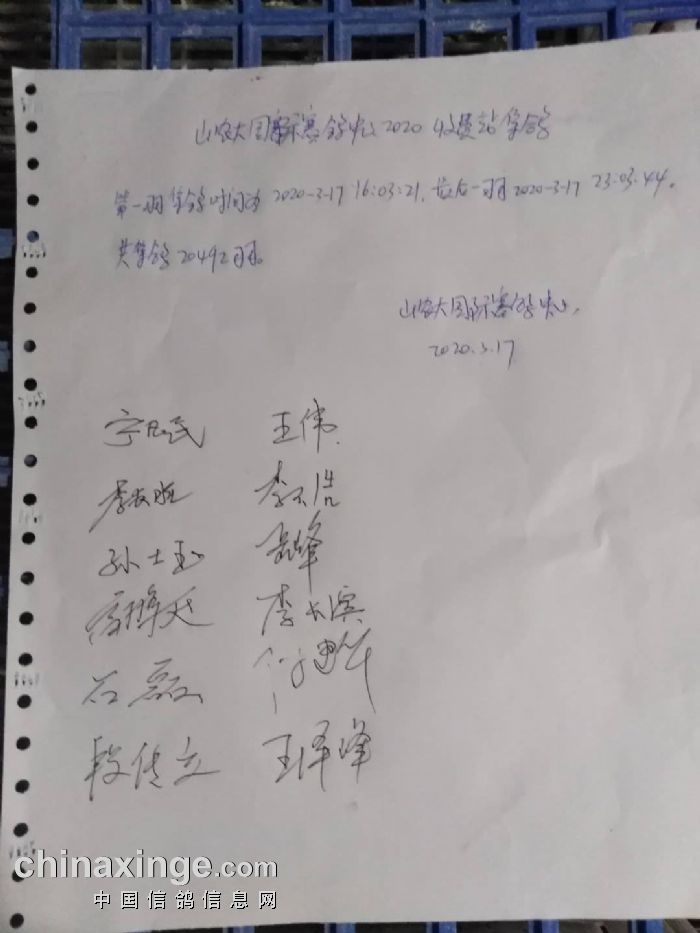 山农大国际赛鸽中心2020 收费站集鸽
第一羽集鸽时间为 2020-3-17 16:03:21. 最后一羽 2020-3-17 23:03:44.
共集鸽 20492羽.
山农大国际赛鸽中心.
2020.3.17
宁 民 王伟
李 浩
孙士玉 峰
李长滨
石磊
段传立 王泽峰
chinaxinge.com
中国信鸽信息网